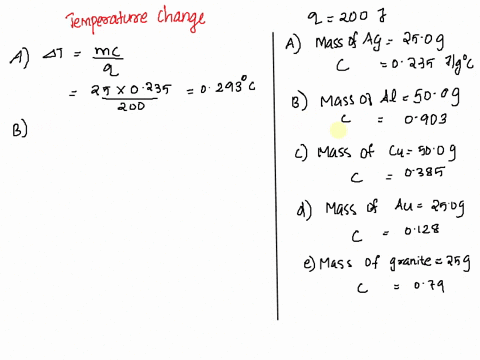 Temperature change
A) ΔT = mc
q
= 25 x 0.235 = 0.293°C
200
B)
q = 200 J
A) Mass of Ag = 25.0g
C = 0.235 J/g°C
B) Mass of Al = 50.0g
C = 0.903
c) Mass of Cu = 50.0g
C = 0.385
d) Mass of Au = 25.0g
C = 0.128
e) Mass of granite = 25g
C = 0.79